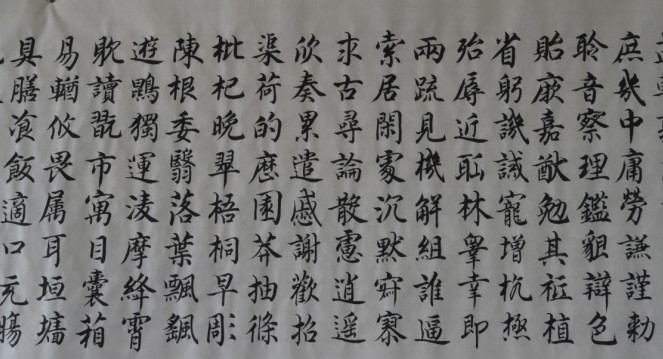 庶幾中庸勞謙謹勅
聆音察理鑑貌辯色
貽厥嘉猷勉其祗植
省躬譏誡寵增抗極
殆辱近恥林皋幸即
兩疏見機解組誰逼
索居閑處沉默寂寥
求古尋論散慮逍遥
欣奏累遣慼謝歡招
渠荷的歷園莽抽條
枇杷晚翠梧桐早彫
陳根委翳落葉飄颻
遊鵾獨運淩摩絳霄
耽讀翫市寓目囊箱
易輶攸畏属耳垣墻
具膳飡飯適口充腸